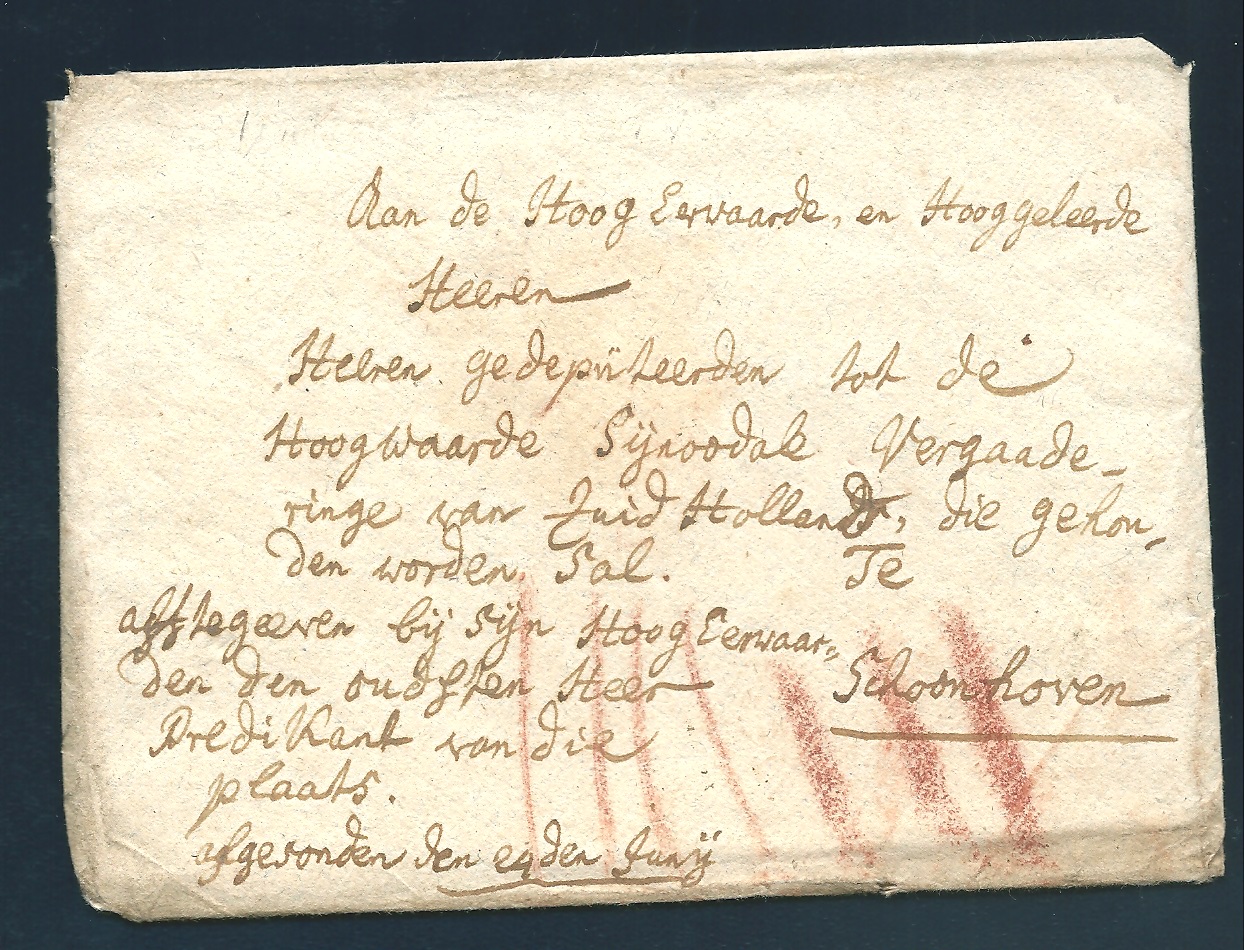 Aan de Hoog Eerwaarde, en Hooggeleerde
Heeren
Heeren gedepüteerden tot de
Hoogwaarde Sijnoodale Vergaade-
ringe van Zuid Holland, die gehou„
den worden Sal. Te
afftegeeven bij Sijn Hoog Eerwaar„
den den oudsten Heer Schoonhoven
Predikant van die
plaats.
afgesonden den den Junij